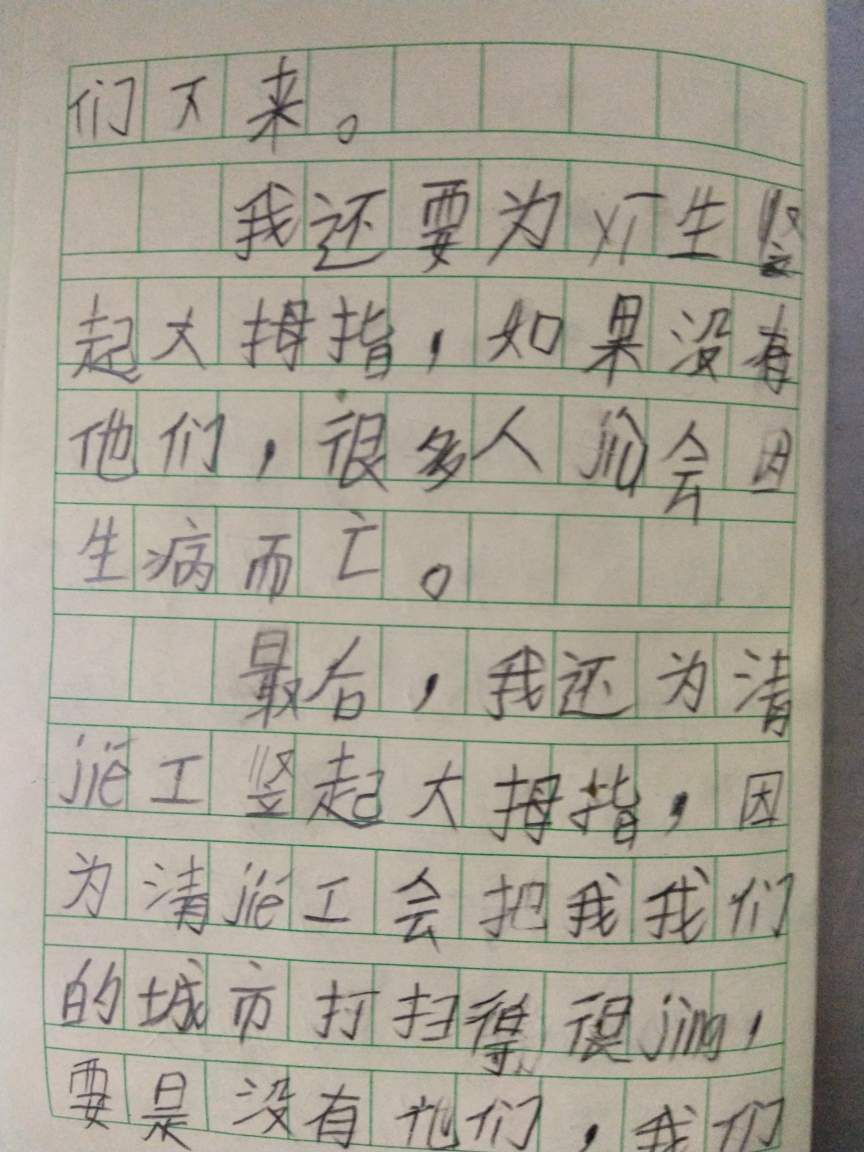 们下来。
我还要为yī生竖
起大拇指，如果没有
他们，很多人jiù会因
生病而亡。
最后，我还为清
jié工竖起大拇指，因
为清jié工会把我我们
的城市打扫得很jìng，
要是没有他们，我们